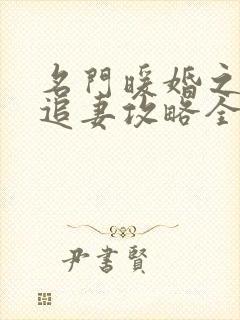 名門暖婚之
追妻攻略全
尹書賢